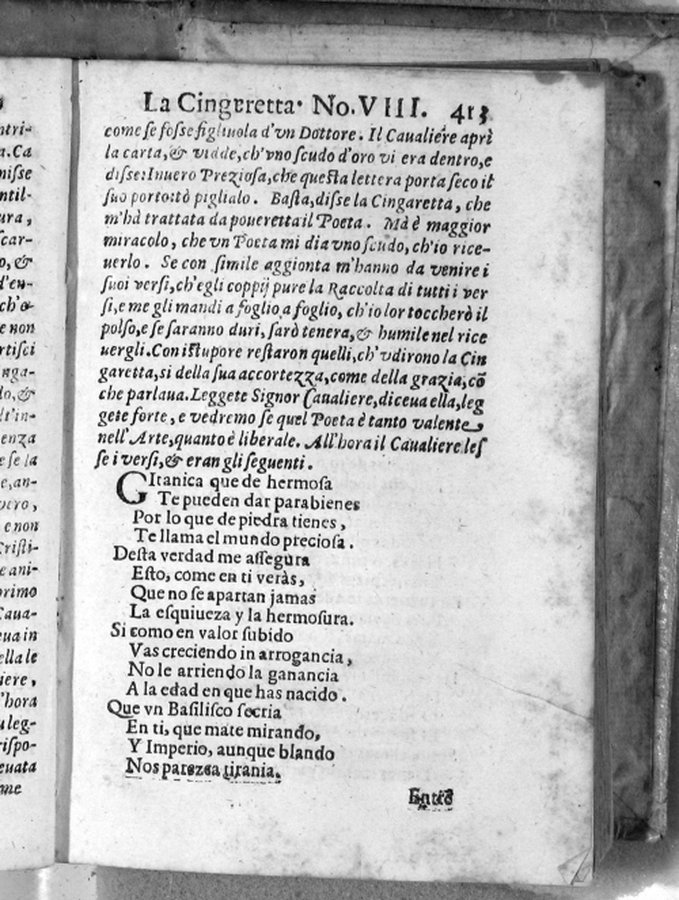 ntri-
a. Ca
nisse
ntil-
ura,
scar-
o, &
d'en-
ch'o-
e non
rtisci
nga-
do, &
lt'in-
enza
e se la
e, an-
e non
Cristi-
e ani-
primo
Caua-
eua in
ella le
iere,
l'hora
u leg-
rispo-
euata
me
La Cingaretta. No. VIII. 413
come se fosse figliuola d'vn Dottore. Il Caualiere aprì
la carta, & vidde, ch'vno scudo d'oro vi era dentro, e
disse: Inuero Preziosa, che questa lettera porta seco il
suo porto: tò piglialo. Basta, disse la Cingaretta, che
m'hà trattata da poueretta il Poeta. Mà è maggior
miracolo, che vn Poeta mi dia vno scudo, ch'io rice-
uerlo. Se con simile aggionta m'hanno da venire i
suoi versi, ch'egli coppij pure la Raccolta di tutti i ver
si, e me gli mandi a foglio a foglio, ch'io lor toccherò il
polso, e se saranno duri, sarò tenera, & humile nel rice
uergli. Con istupore restaron quelli, ch'vdirono la Cin
garetta, si della sua accortezza, come della grazia, cõ
che parlaua. Leggete Signor Caualiere, diceua ella, leg
gete forte, e vedremo se quel Poeta è tanto valente
nell'Arte, quanto è liberale. All'hora il Caualiere les
se i versi, & eran gli seguenti.
GItanica que de hermosa
Te pueden dar parabienes
Por lo que de piedra tienes,
Te llama el mundo preciosa.
Desta verdad me assegura
Esto, como en ti veràs,
Que no se apartan jamas
La esquiueza y la hermosura.
Si como en valor subido
Vas creciendo in arrogancia,
No le arriendo la ganancia
A la edad en que has nacido.
Que vn Basilisco secria
En ti, que mate mirando,
Y Imperio, aunque blando
Nos parezca tirania.
Entrò